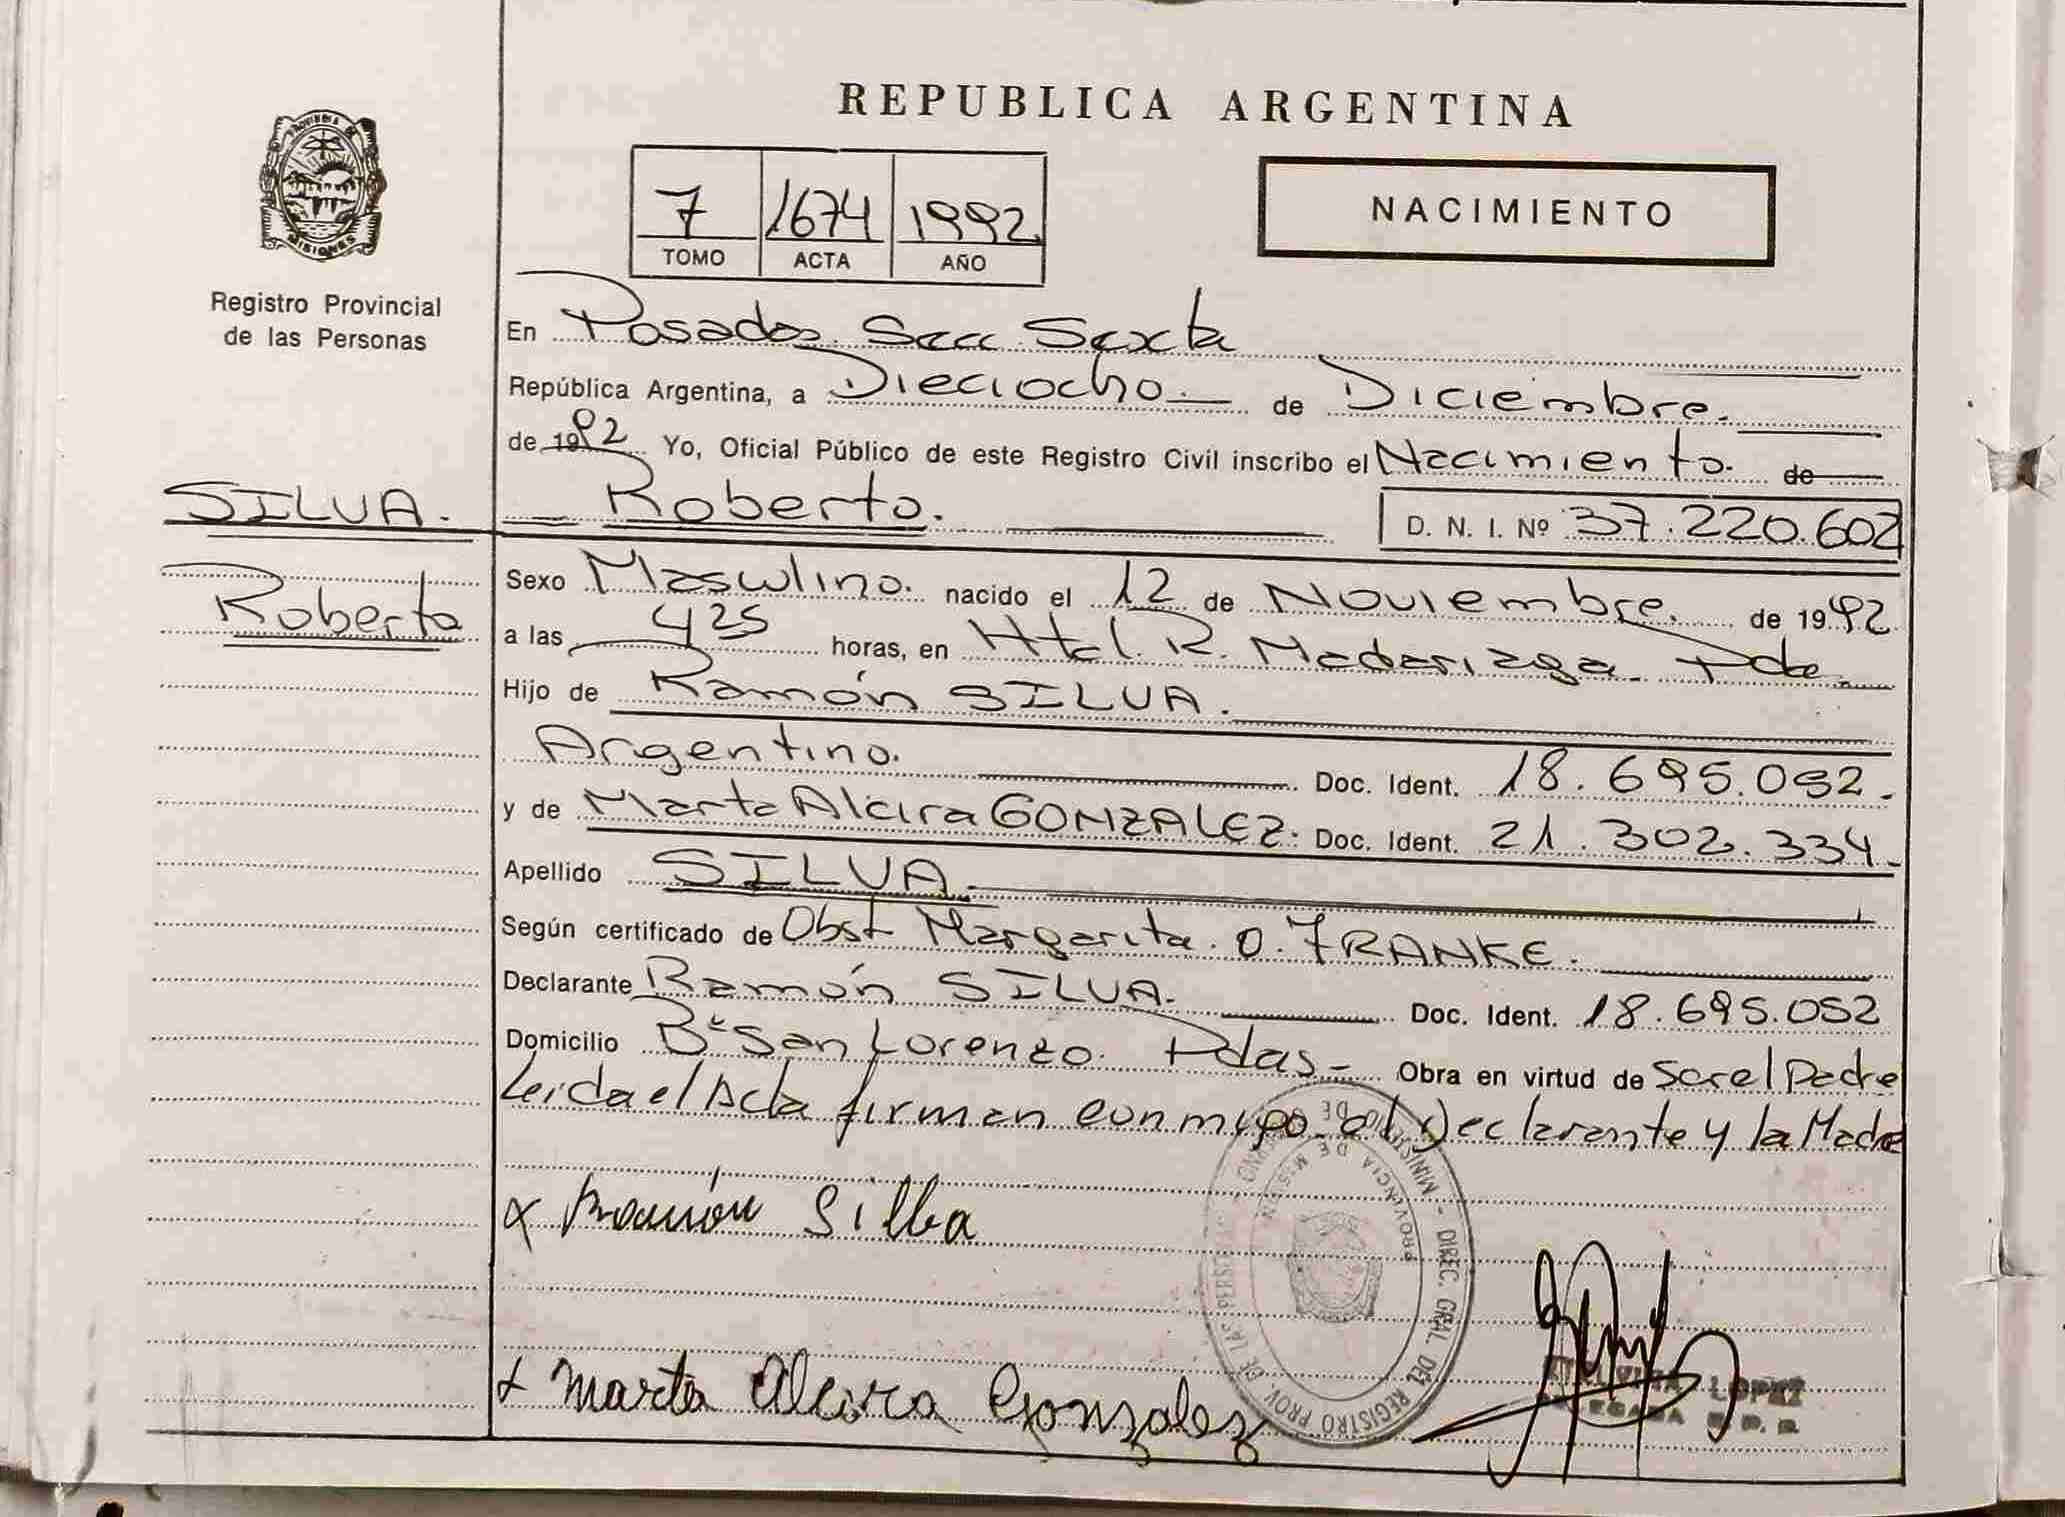 REPUBLICA ARGENTINA
PROVINCIA DE
MISIONES
Registro Provincial
de las Personas
7 1674 1992
TOMO ACTA AÑO
NACIMIENTO
En Posadas Secc Sexta
República Argentina, a Dieciocho. de Diciembre.
de 1992 Yo, Oficial Público de este Registro Civil inscribo el Nacimiento. de
SILVA. Roberto. D. N. I. Nº 37.220.602
Roberto
Sexo Masculino. nacido el 12 de Noviembre. de 1992
a las 4 25 horas, en Htal. R. Madariaga. Pdas.
Hijo de Ramón SILVA.
Argentino. Doc. Ident. 18.695.052.
y de Marta Alcira GONZALEZ. Doc. Ident. 21.302.334.
Apellido SILVA.
Según certificado de Obst Margarita. O. FRANKE.
Declarante Ramón SILVA. Doc. Ident. 18.695.052
Domicilio Bº San Lorenzo. Pdas. Obra en virtud de Ser el Padre
Leida el Acta firman conmigo el Declarante y la Madre
x Ramón Silba
x Marta Alcira Gonzalez
MINISTERIO DE GOBIERNO - DIREC. GRAL. DEL REGISTRO PROV. DE LAS PERSONAS
PROVINCIA DE MISIONES
LOPEZ